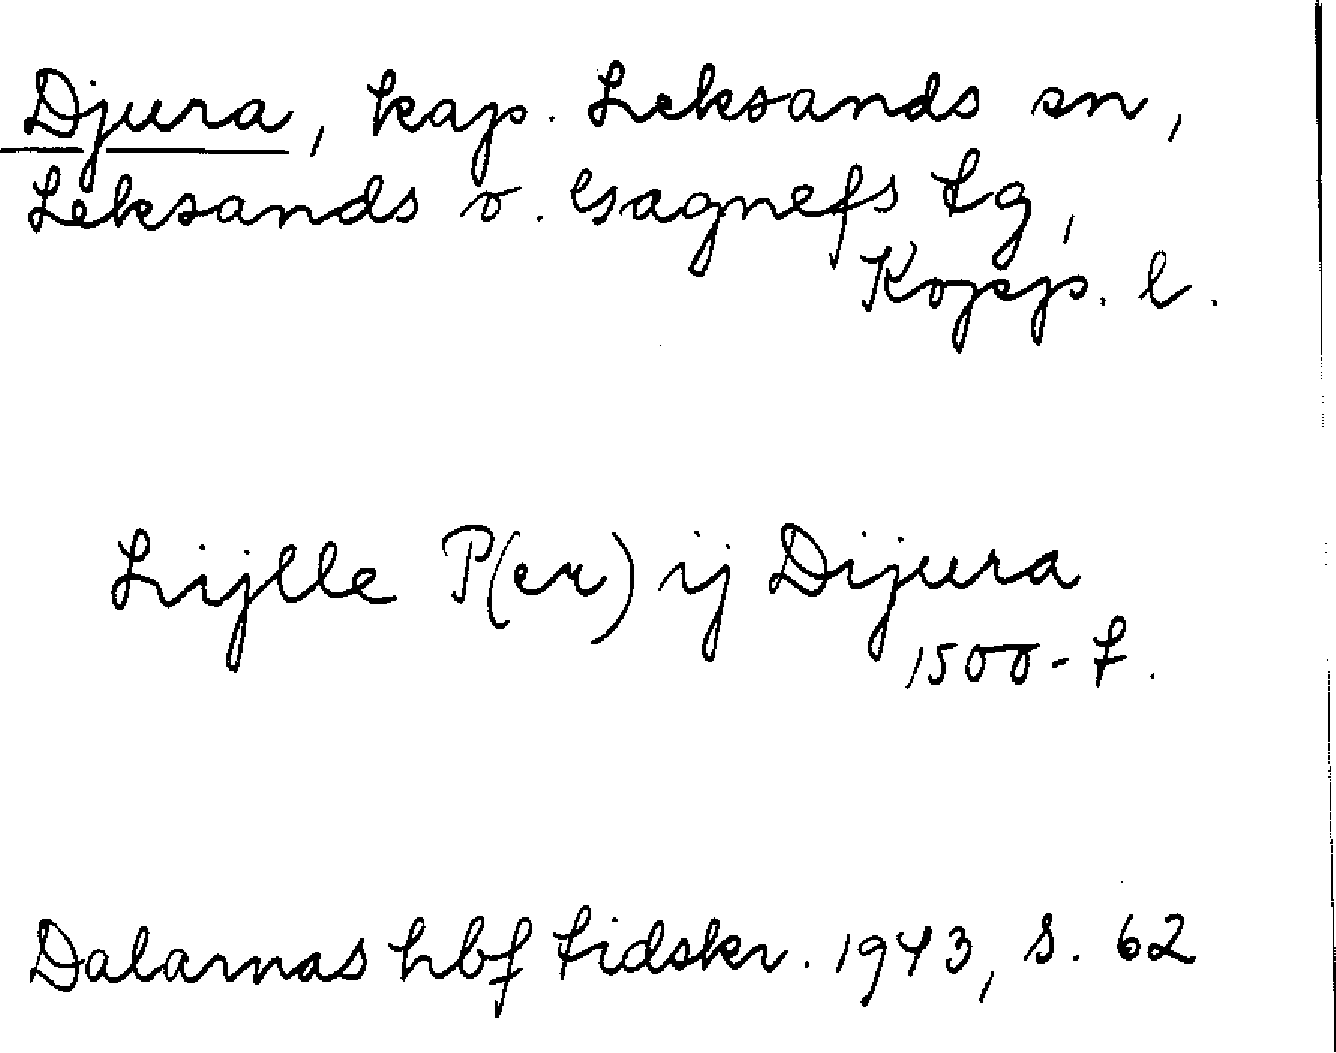 Djura, kap. Leksands sn,
Leksands o. Gagnefs tg,
Kopp. l.
Lijlle P(er) ij Dijura
1500-t.
Dalarnas hbf tidskr. 1943, s. 62